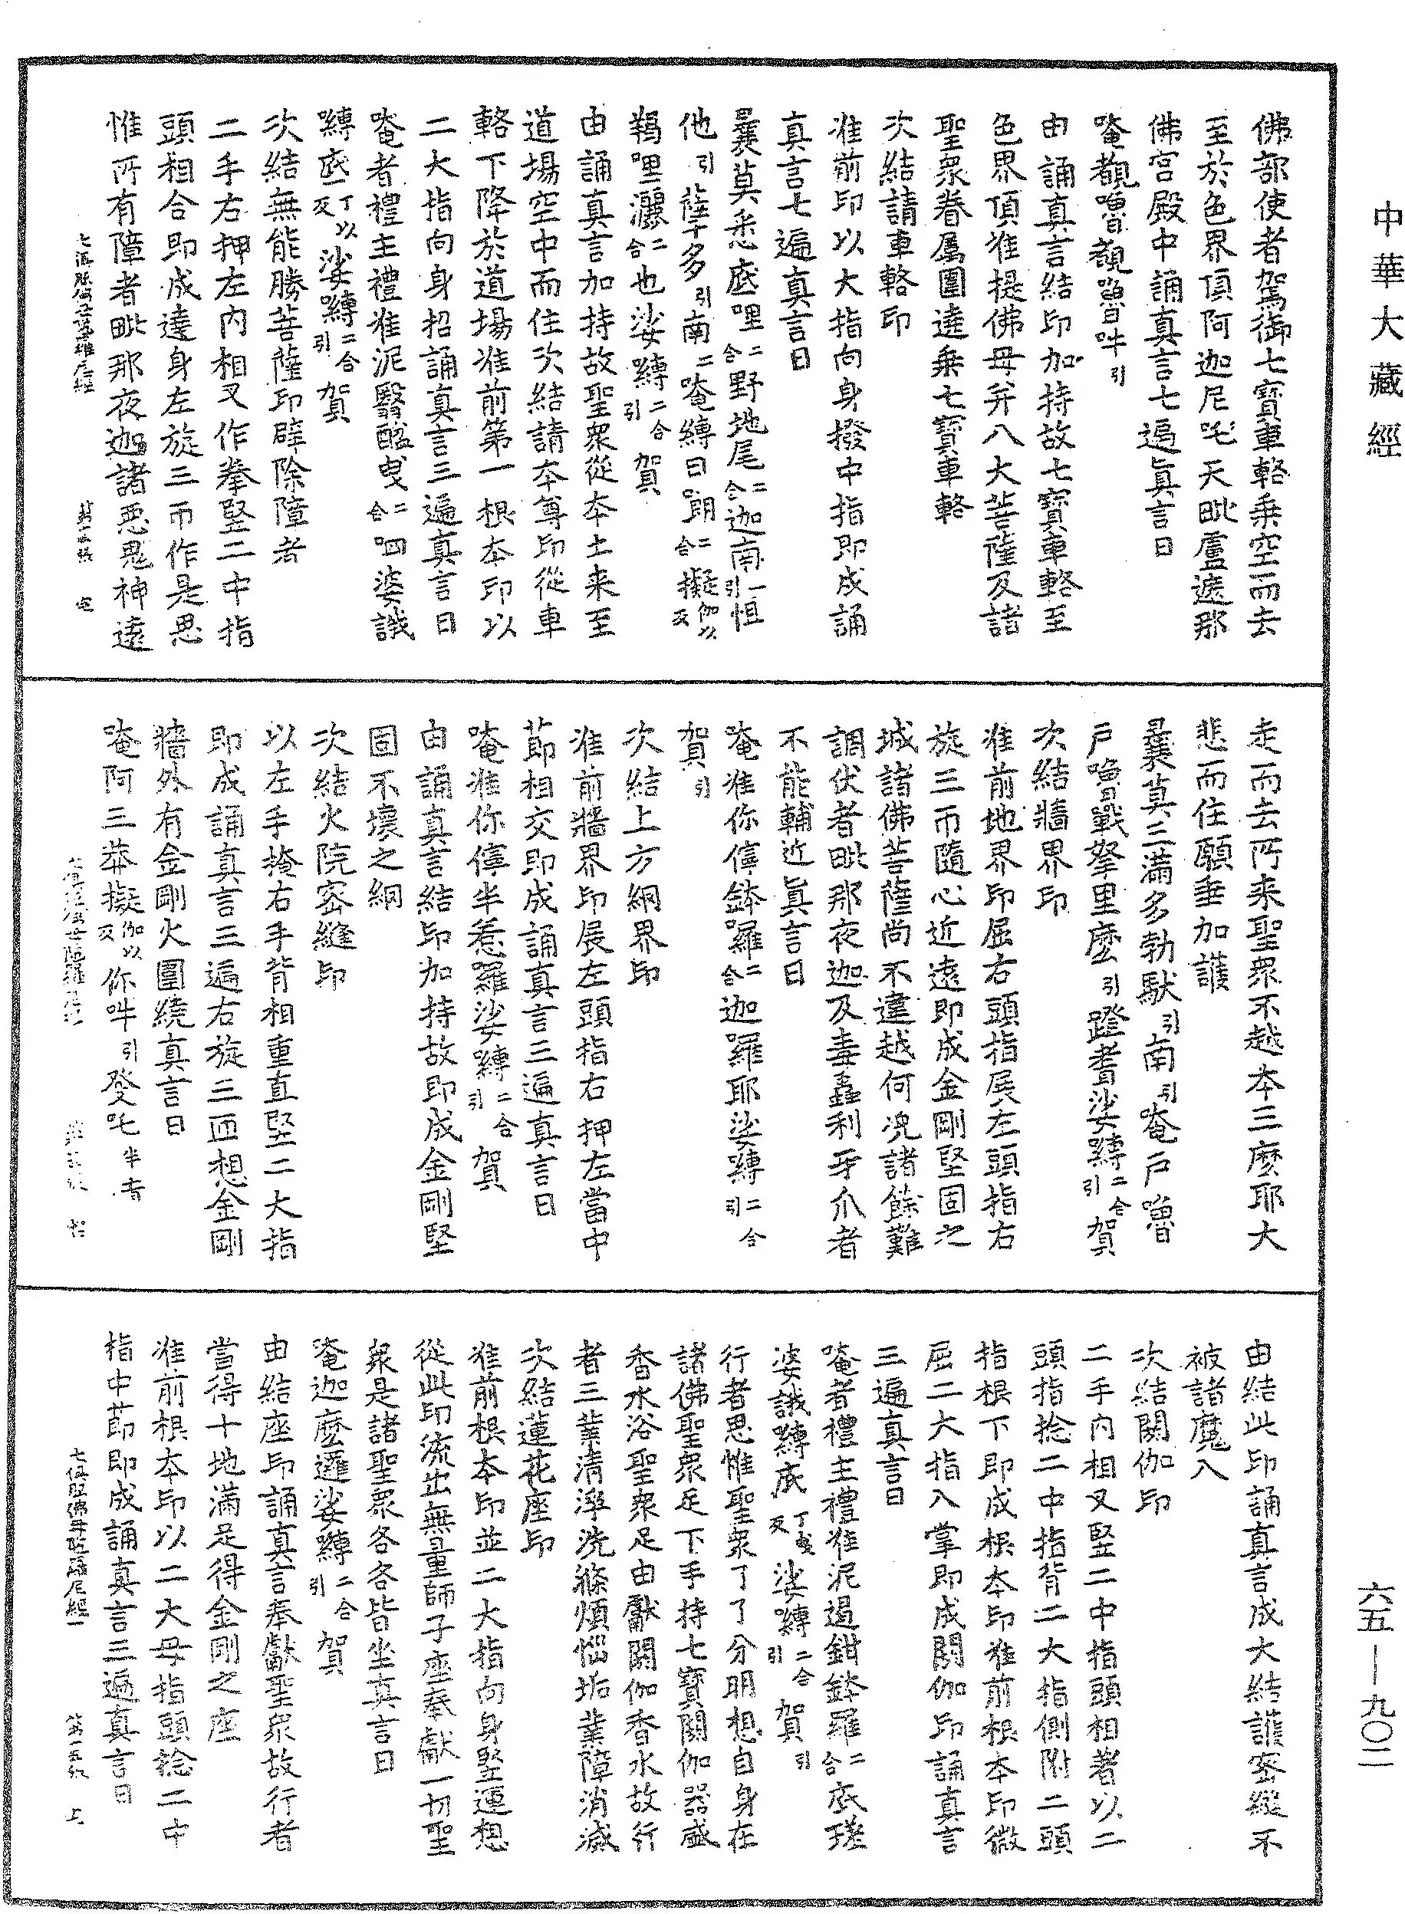 中華大藏經
佛部使者駕御七寶車輅乘空而去
至於色界頂阿迦尼吒天毗盧遮那
佛宮殿中誦真言七遍真言曰
唵覩嚕覩嚕吽引
由誦真言結印加持故七寶車輅至
色界頂准提佛母并八大菩薩及諸
聖眾眷屬圍遶乘七寶車輅
次結請車輅印
准前印以大指向身撥中指即成誦
真言七遍真言曰
曩莫悉底哩二合野地尾二合迦南一引怛
他引蘖多引南二唵縛曰朗二合擬伽以反
羯哩灑二合也娑嚩二合引賀
由誦真言加持故聖眾從本土来至
道場空中而住次結請本尊印從車
輅下降於道場准前第一根本印以
二大指向身招誦真言三遍真言曰
唵者禮主禮准泥翳醯曳二合呬婆誐
嚩底丁以反娑嚩二合引賀
次結無能勝菩薩印辟除障者
二手右押左内相叉作拳竪二中指
頭相合即成遶身左旋三帀作是思
惟所有障者毗那夜迦諸惡鬼神遠
走而去所来聖眾不越本三麼耶大
悲而住願垂加護
曩莫三滿多勃馱引南引唵戶嚕
戶嚕戰拏里麼引蹬耆娑嚩二合引賀
次結牆界印
准前地界印屈右頭指展左頭指右
旋三帀隨心近遠即成金剛堅固之
城諸佛菩薩尚不違越何況諸餘難
調伏者毗那夜迦及毒蟲利牙爪者
不能輔近真言曰
唵准你儜鉢囉二合迦囉耶娑嚩二合引
賀引
次結上方網界印
准前牆界印展左頭指右押左當中
節相交即成誦真言三遍真言曰
唵准你儜半惹囉娑嚩二合引賀
由誦真言結印加持故即成金剛堅
固不壞之網
次結火院密縫印
以左手掩右手背相重直竪二大指
即成誦真言三遍右旋三匝想金剛
牆外有金剛火圍繞真言曰
唵阿三莽擬伽以反你吽引發吒半音
由結此印誦真言成大結護密縫不
被諸魔入
次結閼伽印
二手内相叉竪二中指頭相著以二
頭指捻二中指背二大指側附二頭
指根下即成根本印准前根本印微
屈二大指入掌即成閼伽印誦真言
三遍真言曰
唵者禮主禮准泥遏鉗鉢羅二合底瑳
婆誐嚩底丁曳反娑嚩二合引賀引
行者思惟聖眾了了分明想自身在
諸佛聖眾足下手持七寶閼伽器盛
香水浴聖眾足由獻閼伽香水故行
者三業清淨洗滌煩惱垢業障消滅
次結蓮花座印
准前根本印並二大指向身竪運想
從此印流出無量師子座奉獻一切聖
眾是諸聖眾各各皆坐真言曰
唵迦麼邏娑嚩二合引賀
由結座印誦真言奉獻聖眾故行者
當得十地滿足得金剛之座
准前根本印以二大母指頭捻二中
指中節即成誦真言三遍真言曰
七俱胝佛母陁羅尼經
六五—九〇二